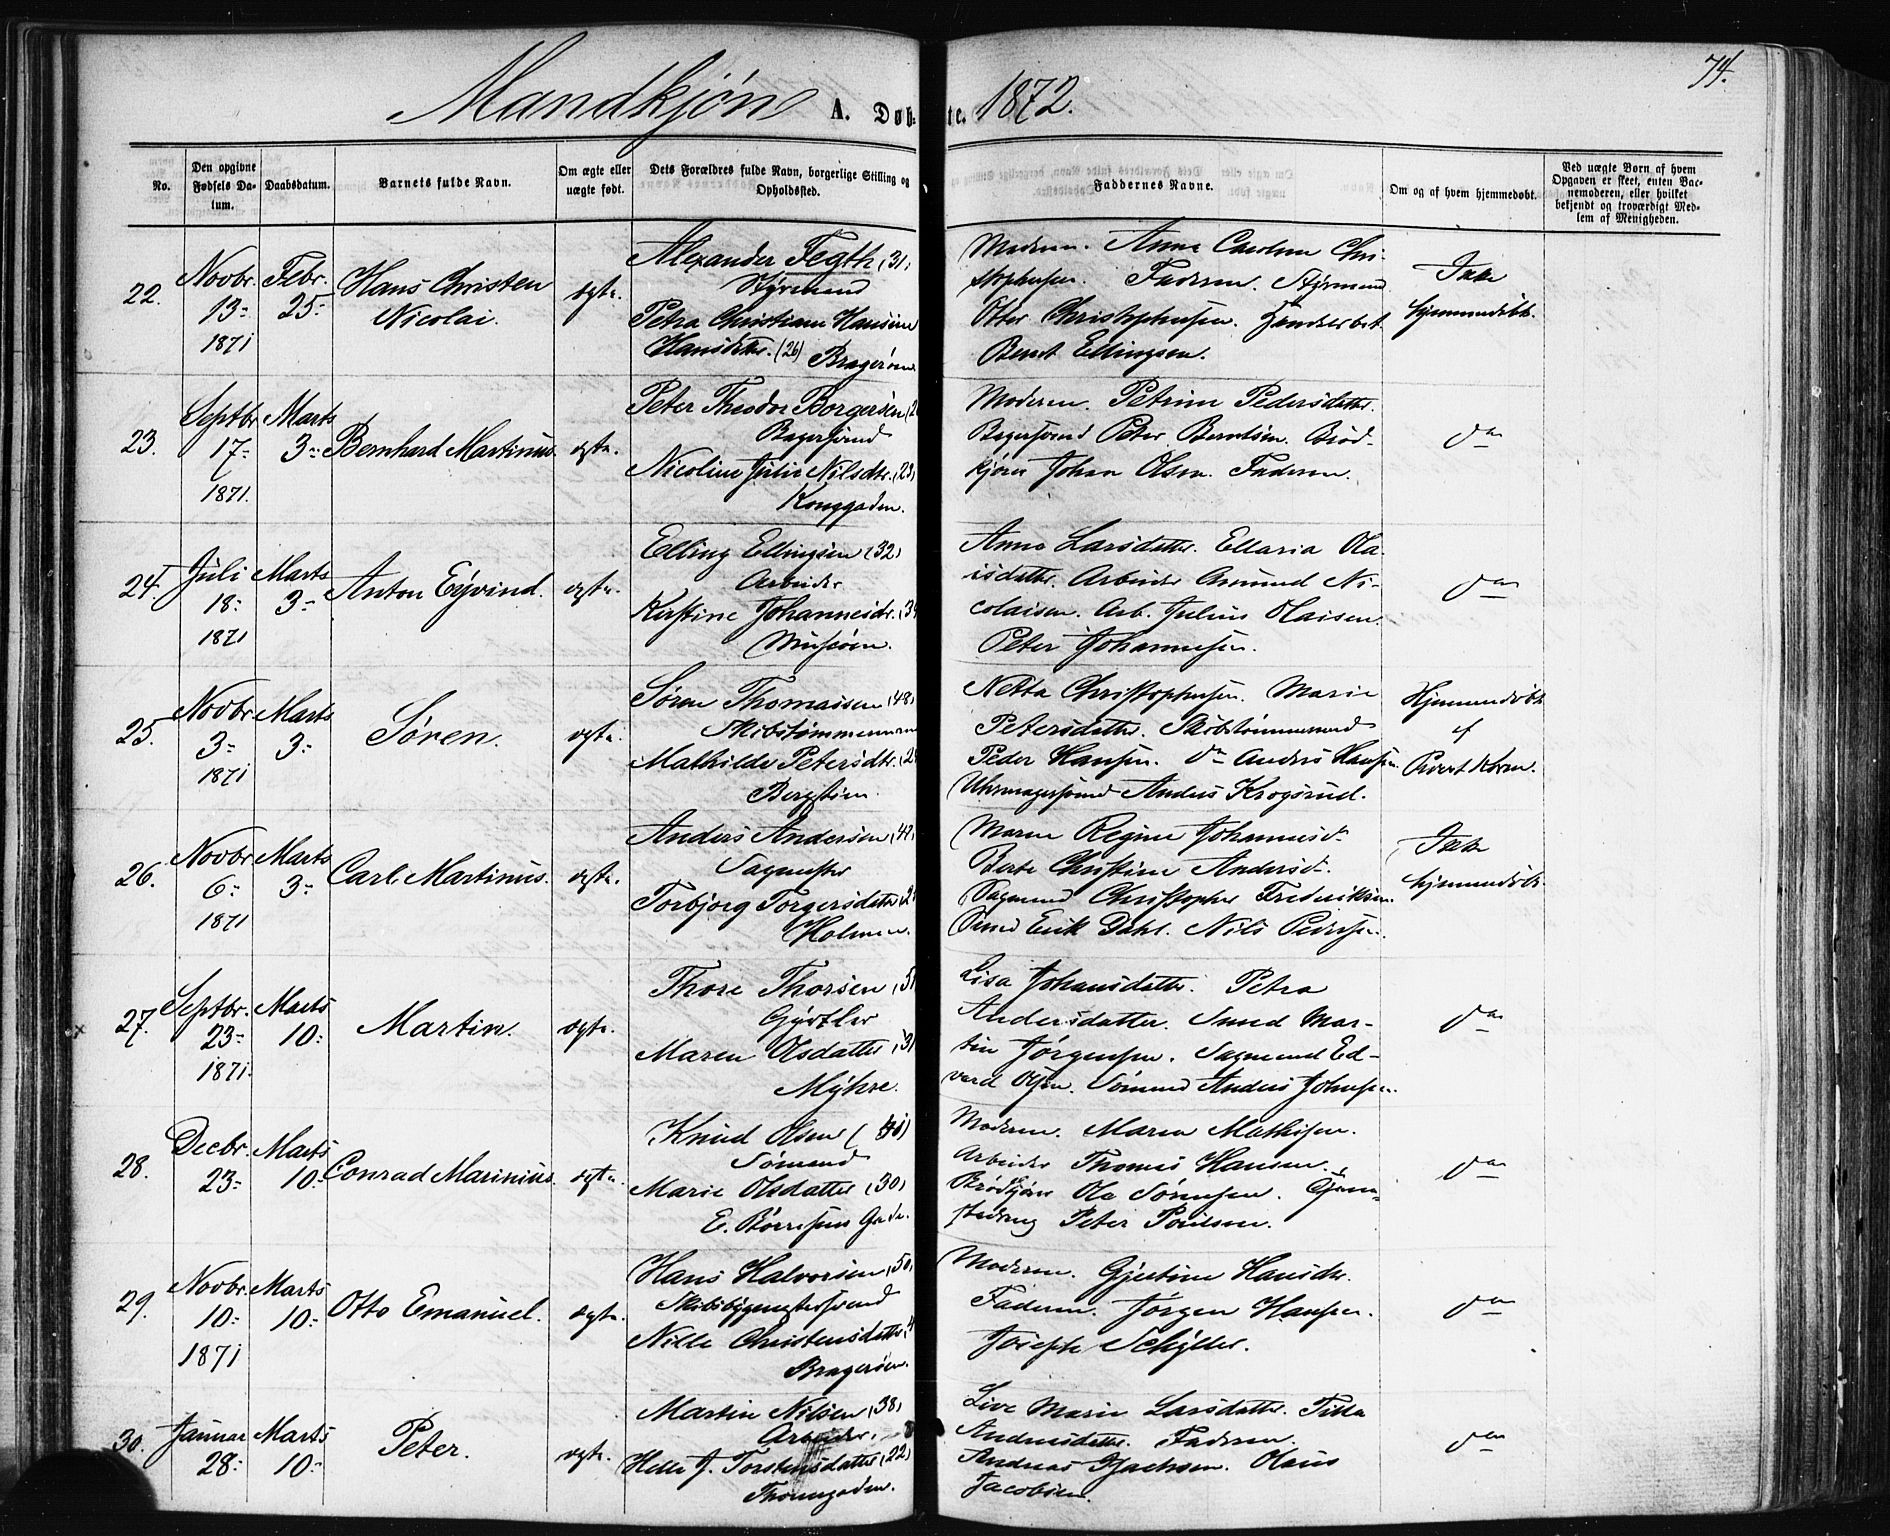 74.
Mandkjøn A. Døbte. 1872.
No.
Den opgivne Fødsels Datum.
Daabsdatum.
Barnets fulde Navn.
Om ægte eller uægte født.
Dets Forældres fulde Navn, borgerlige Stilling og Opholdssted.
Faddernes Navne.
Om og af hvem hjemmedøbt.
Ved uægte Børn af hvem Opgaven er skeet, enten Barnemoderen, eller hvilket bekjendt og troværdigt Medlem af Menigheden.
22.
Novbr. 13- 1871
Febr. 25-
Hans Christen
Nicolai.
ægte.
Alexander Fegth (31)
Styrmand
Petra Christiane Hansine
Hansdatter. (26) Bragerøen
Moderen. Anne Caroline Chri-
stophersen. Faderen. Styrmand
Otter Christophersen.
Bernt Ellingsen.
Ikke
hjemmedøbt.
23.
Septbr 17- 1871.
Marts 3-
Bernhard Martinus.
ægte.
Peter Theodor Borgersen
Bagersvend
Nicoline Julie Nilsdtr. (23)
Konggaden.
Moderen. Petrine Pedersdatter.
Bagersvend Peter Berntsen. Brød-
kjører Johan Olsen. Faderen.
do
24.
Juli 18- 1871
Marts 3-
Anton Eyvind.
ægte.
Elling Ellingsen (32)
Arbeider
Kirstine Johannesdtr.
Anne Larsdatter. Ellaria Ola-
isdatter. Arbeider Amund Ni-
colaisen. Arb. Julius Olaisen.
Peter Johannesen.
do
25.
Novbr 3- 1871
Marts 3-
Søren.
ægte.
Søren Thomassen (48)
Skibstømmermand
Mathilde Petersdtr.
Bergstien.
Netta Christophersen. Marie
Petersdatter. Skibstømmermand
Peder Hansen. do Anders Hansen.
Uhrmagersvend Anders Krogsrud.
Hjemmedøbt
af
26.
Novbr 6- 1871
Marts 3-
Carl Martinus.
ægte.
Anders Andersen
Sagmester
Torbjorg Torgersdatter
Holmen.
Maren Regine Johannesd.
Berte Christine Andersd.
Sagmand Christopher Frederiksen.
Smed Erik Dahl. Nils Pedersen.
Ikke
hjemmedøbt.
27.
Septbr. 23- 1871.
Marts 10-
Martin.
ægte.
Thore Thorsen
Gjørtler
Maren Olsdatter
Myhre.
Lisa Johansdatter. Petra
Andersdatter. Smed Mar-
tin Jørgensen. Sagmand Ed-
vard Olsen. Sømand Anders Johnsen.
do
28.
Decbr. 23-
Marts 10-
Conrad Marinius.
ægte.
Knud Olsen
Sømand
Marie Olsdatter (30)
E. Børresens Gade.
Moderen. Maren Mathisen.
Arbeider Thomas Hansen.
Brødkjører Ole Sørensen.
Peter Poulsen.
do
29.
Novbr. 10- 1871
Marts 10-
Otto Emanuel.
ægte.
Hans Halvorsen (50)
Skibsbyggmestersvend
Nille Christensdatter
Bragerøen.
Moderen. Gjertine Hansdtr.
Faderen. Jørgen Hansen.
Joseph Schyller.
do
30.
Januar 28-
Marts 10-
Peter.
ægte.
Martin Nilsen (38)
Arbeider.
Helle J. Torstensdatter (22)
Thornegaden.
Live Marie Larsdatter. Tilla
Andreasdatter. Faderen.
Andreas Isachsen. Olaus
Jacobsen.
do